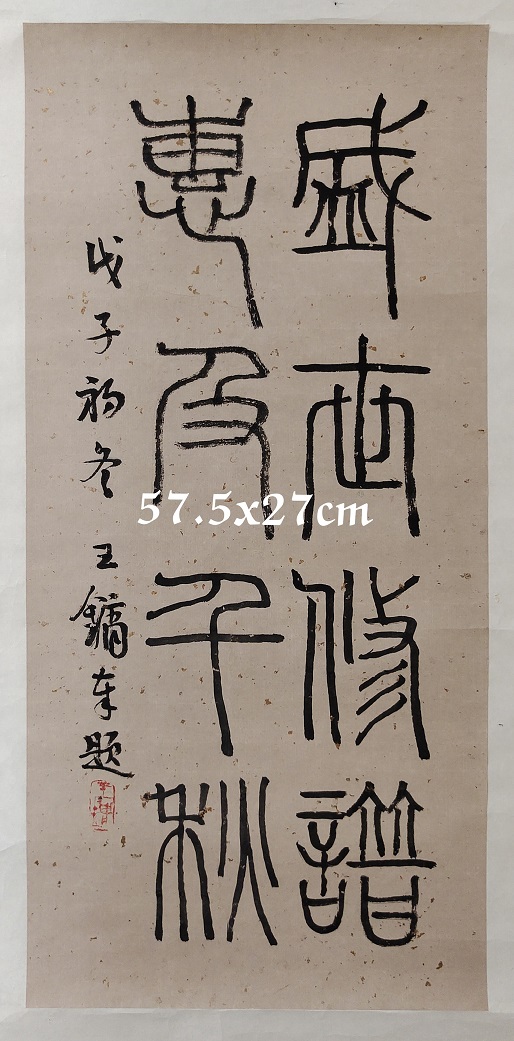 盛世修譜
惠及千秋
戊子初冬 王鏞奉題
57.5x27cm